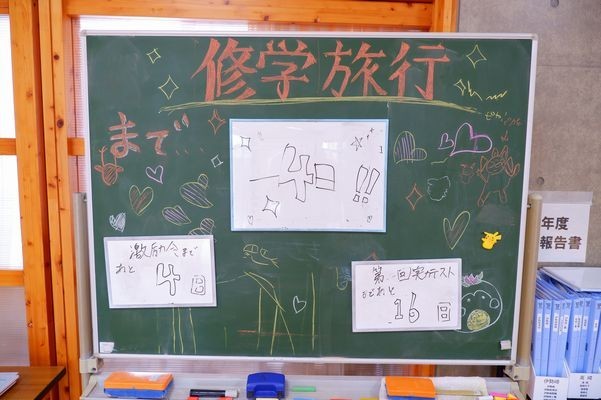 修学旅行
まで...
-4日!!
激励会まで
あと 4日
第一回実力テスト
まであと 16日
年度
報告書